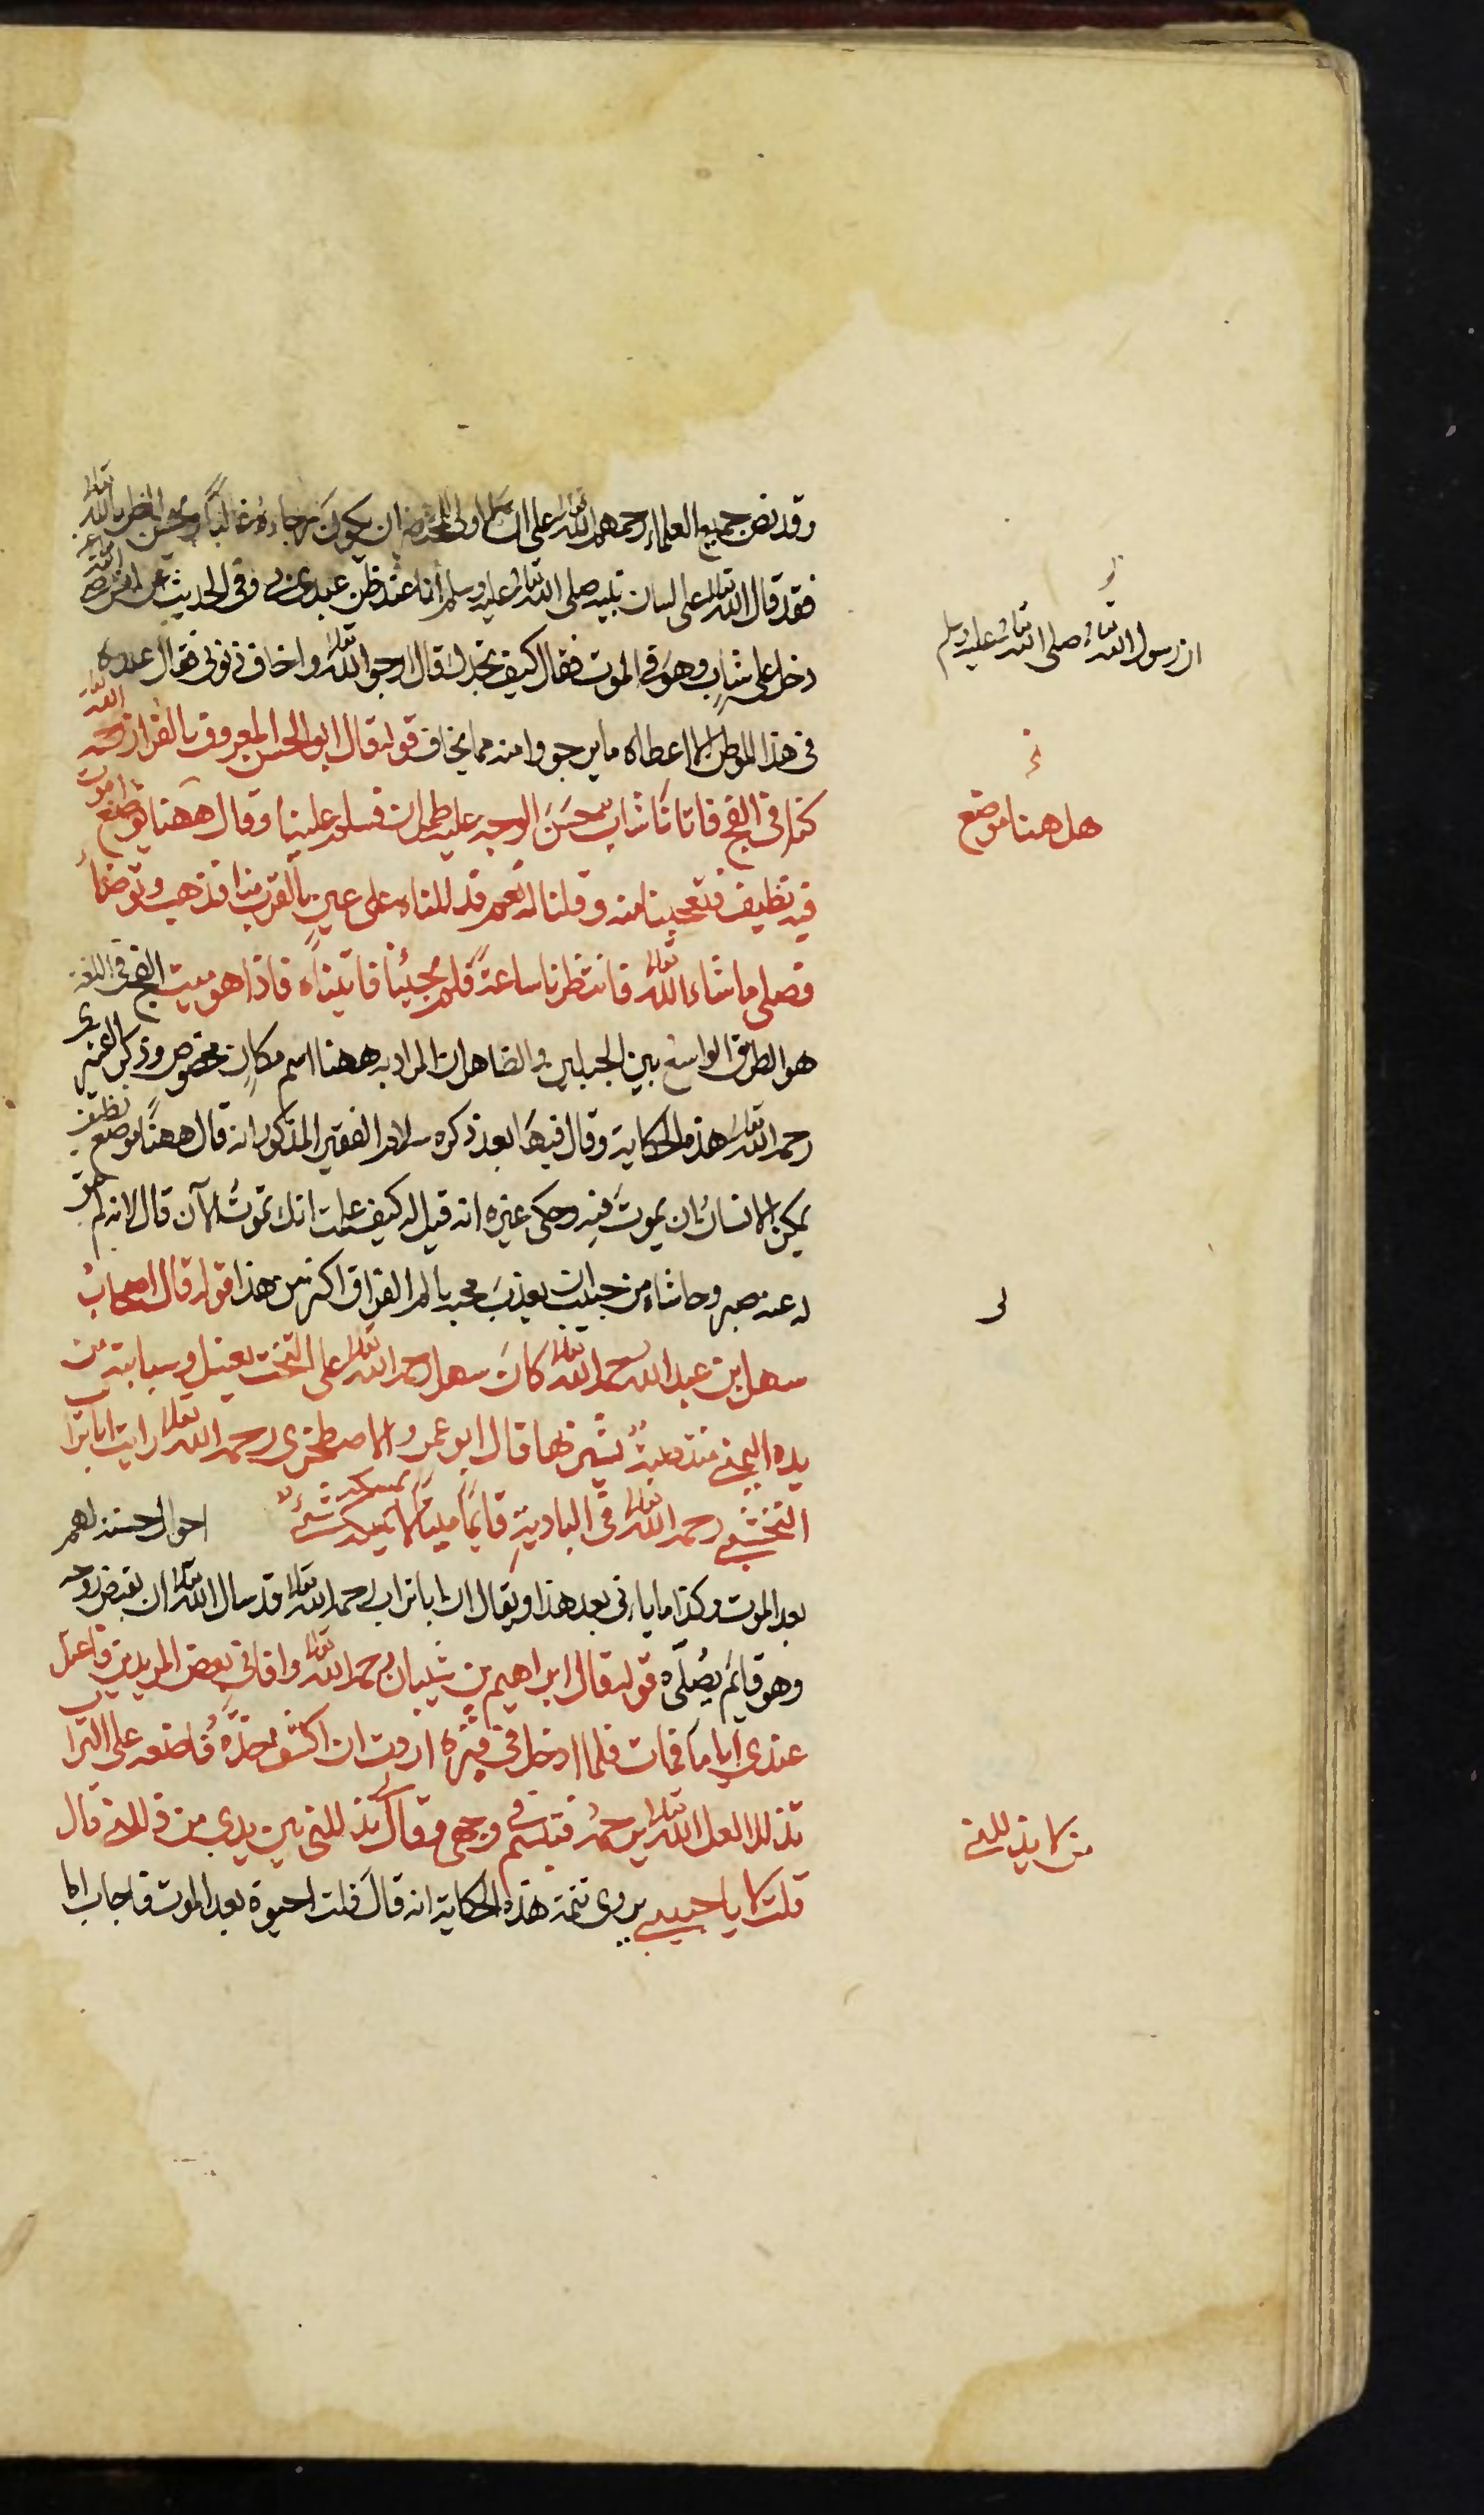 وقد نص جميع العلماء رحمهم الله تعالى على ان الاولى للمحتضر ان يكون رجاءه غالبًا ويحسن الظن بالله تعالى
فقد قال الله تعالى على لسان نبيه صلى الله تعالى عليه وسلم أنا عند ظن عبدي بي وفي الحديث عن انس رضي الله عنه
ان رسول الله تعالى صلى الله تعالى عليه وسلم
دخل على شاب وهو في الموت فقال كيف تجدك قال ارجو الله تعالى واخاف ذنوبي فقال
في هذا الموطن الا اعطاه ما يرجو وامنه مما يخاف قوله قال ابو الحسن المعروف بالقزاز رحمه الله تعالى
كنا في الفج فاتانا شاب حسن الوجه عليه طمران فسلم علينا وقال ههنا موضع اموت
هل هنا موضع
فيه نظيف فتعجبنا منه وقلنا له نعم قد للناه على عين بالقرب منا فذهب وتوضأ
فصلى ما شاء الله تعالى فانتظرنا ساعة فلم يجئنا فاتيناه فاذا هو ميت الفج في اللغة
هو الطريق الواسع بين الجبلين والظاهر ان المراد به ههنا اسم مكان مخصوص وذكر القشيري
رحمه الله تعالى هذه الحكاية وقال فيها بعد ذكره سلام الفقير المذكور انه قال ههنا موضع نظيف
يمكن الانسان ان يموت فيه وحكى غيره انه قيل له كيف علمت انك تموت الآن قال لانه لم يبق
لى
له عنه صبر وحاشاه من حبيب ان يعذب محبه بالم الفراق اكثر من هذا قوله قال اصحاب
سهل ابن عبد الله رحمه الله تعالى كان سهل رحمه الله تعالى على التخت يغسل وسبابته من
يده اليمنى منتصبة يشير بها قال ابو عمرو الاصطخري رحمه الله تعالى رايت ابا تراب
النخشبي رحمه الله تعالى في البادية قايمًا ميتًا لا يمسكه شئ احوال حسنة لهم
بعد الموت وكذا ما ياتي بعد هذا ويقال ان ابا تراب رحمه الله تعالى قد سال الله تعالى ان يقبض روحه
وهو قايم يصلى قوله قال ابراهيم بن شيبان رحمه الله تعالى وافاني بعض المريدين فاعتل
عندي اياما فمات فلما ادخل في قبره اردت ان اكشف خده فاضعه على التراب
تذللا لعل الله تعالى يرحمه فتبسم في وجهي وقال تذللني بين يدي من ذللني قال
من لا يذللني
قلت لا يا حبيبي يروى تتمة هذه الحكاية انه قال قلت احيوة بعد الموت فاجاب اما